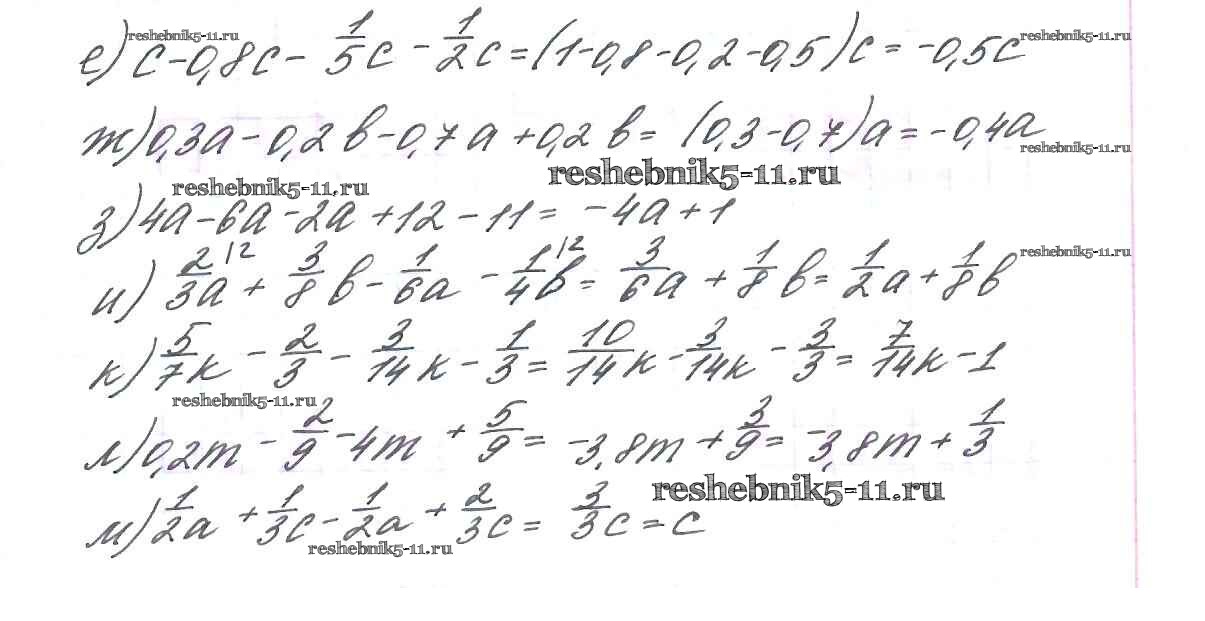 reshebnik5-11.ru reshebnik5-11.ru
е) c - 0,8c - 1/5 c - 1/2 c = (1-0,8-0,2-0,5)c = -0,5c
ж) 0,3a - 0,2b - 0,7a + 0,2b = (0,3-0,7)a = -0,4a
reshebnik5-11.ru
reshebnik5-11.ru
reshebnik5-11.ru
з) 4a - 6a - 2a + 12 - 11 = -4a + 1
reshebnik5-11.ru
и) 2/3 a |2 + 3/8 b - 1/6 a - 1/4 b |2 = 3/6 a + 1/8 b = 1/2 a + 1/8 b
к) 5/7 к - 2/3 - 3/14 к - 1/3 = 10/14 к - 3/14 к - 3/3 = 7/14 к - 1
reshebnik5-11.ru
л) 0,2m - 2/9 - 4m + 5/9 = -3,8m + 3/9 = -3,8m + 1/3
reshebnik5-11.ru
м) 1/2 a + 1/3 c - 1/2 a + 2/3 c = 3/3 c = c
reshebnik5-11.ru